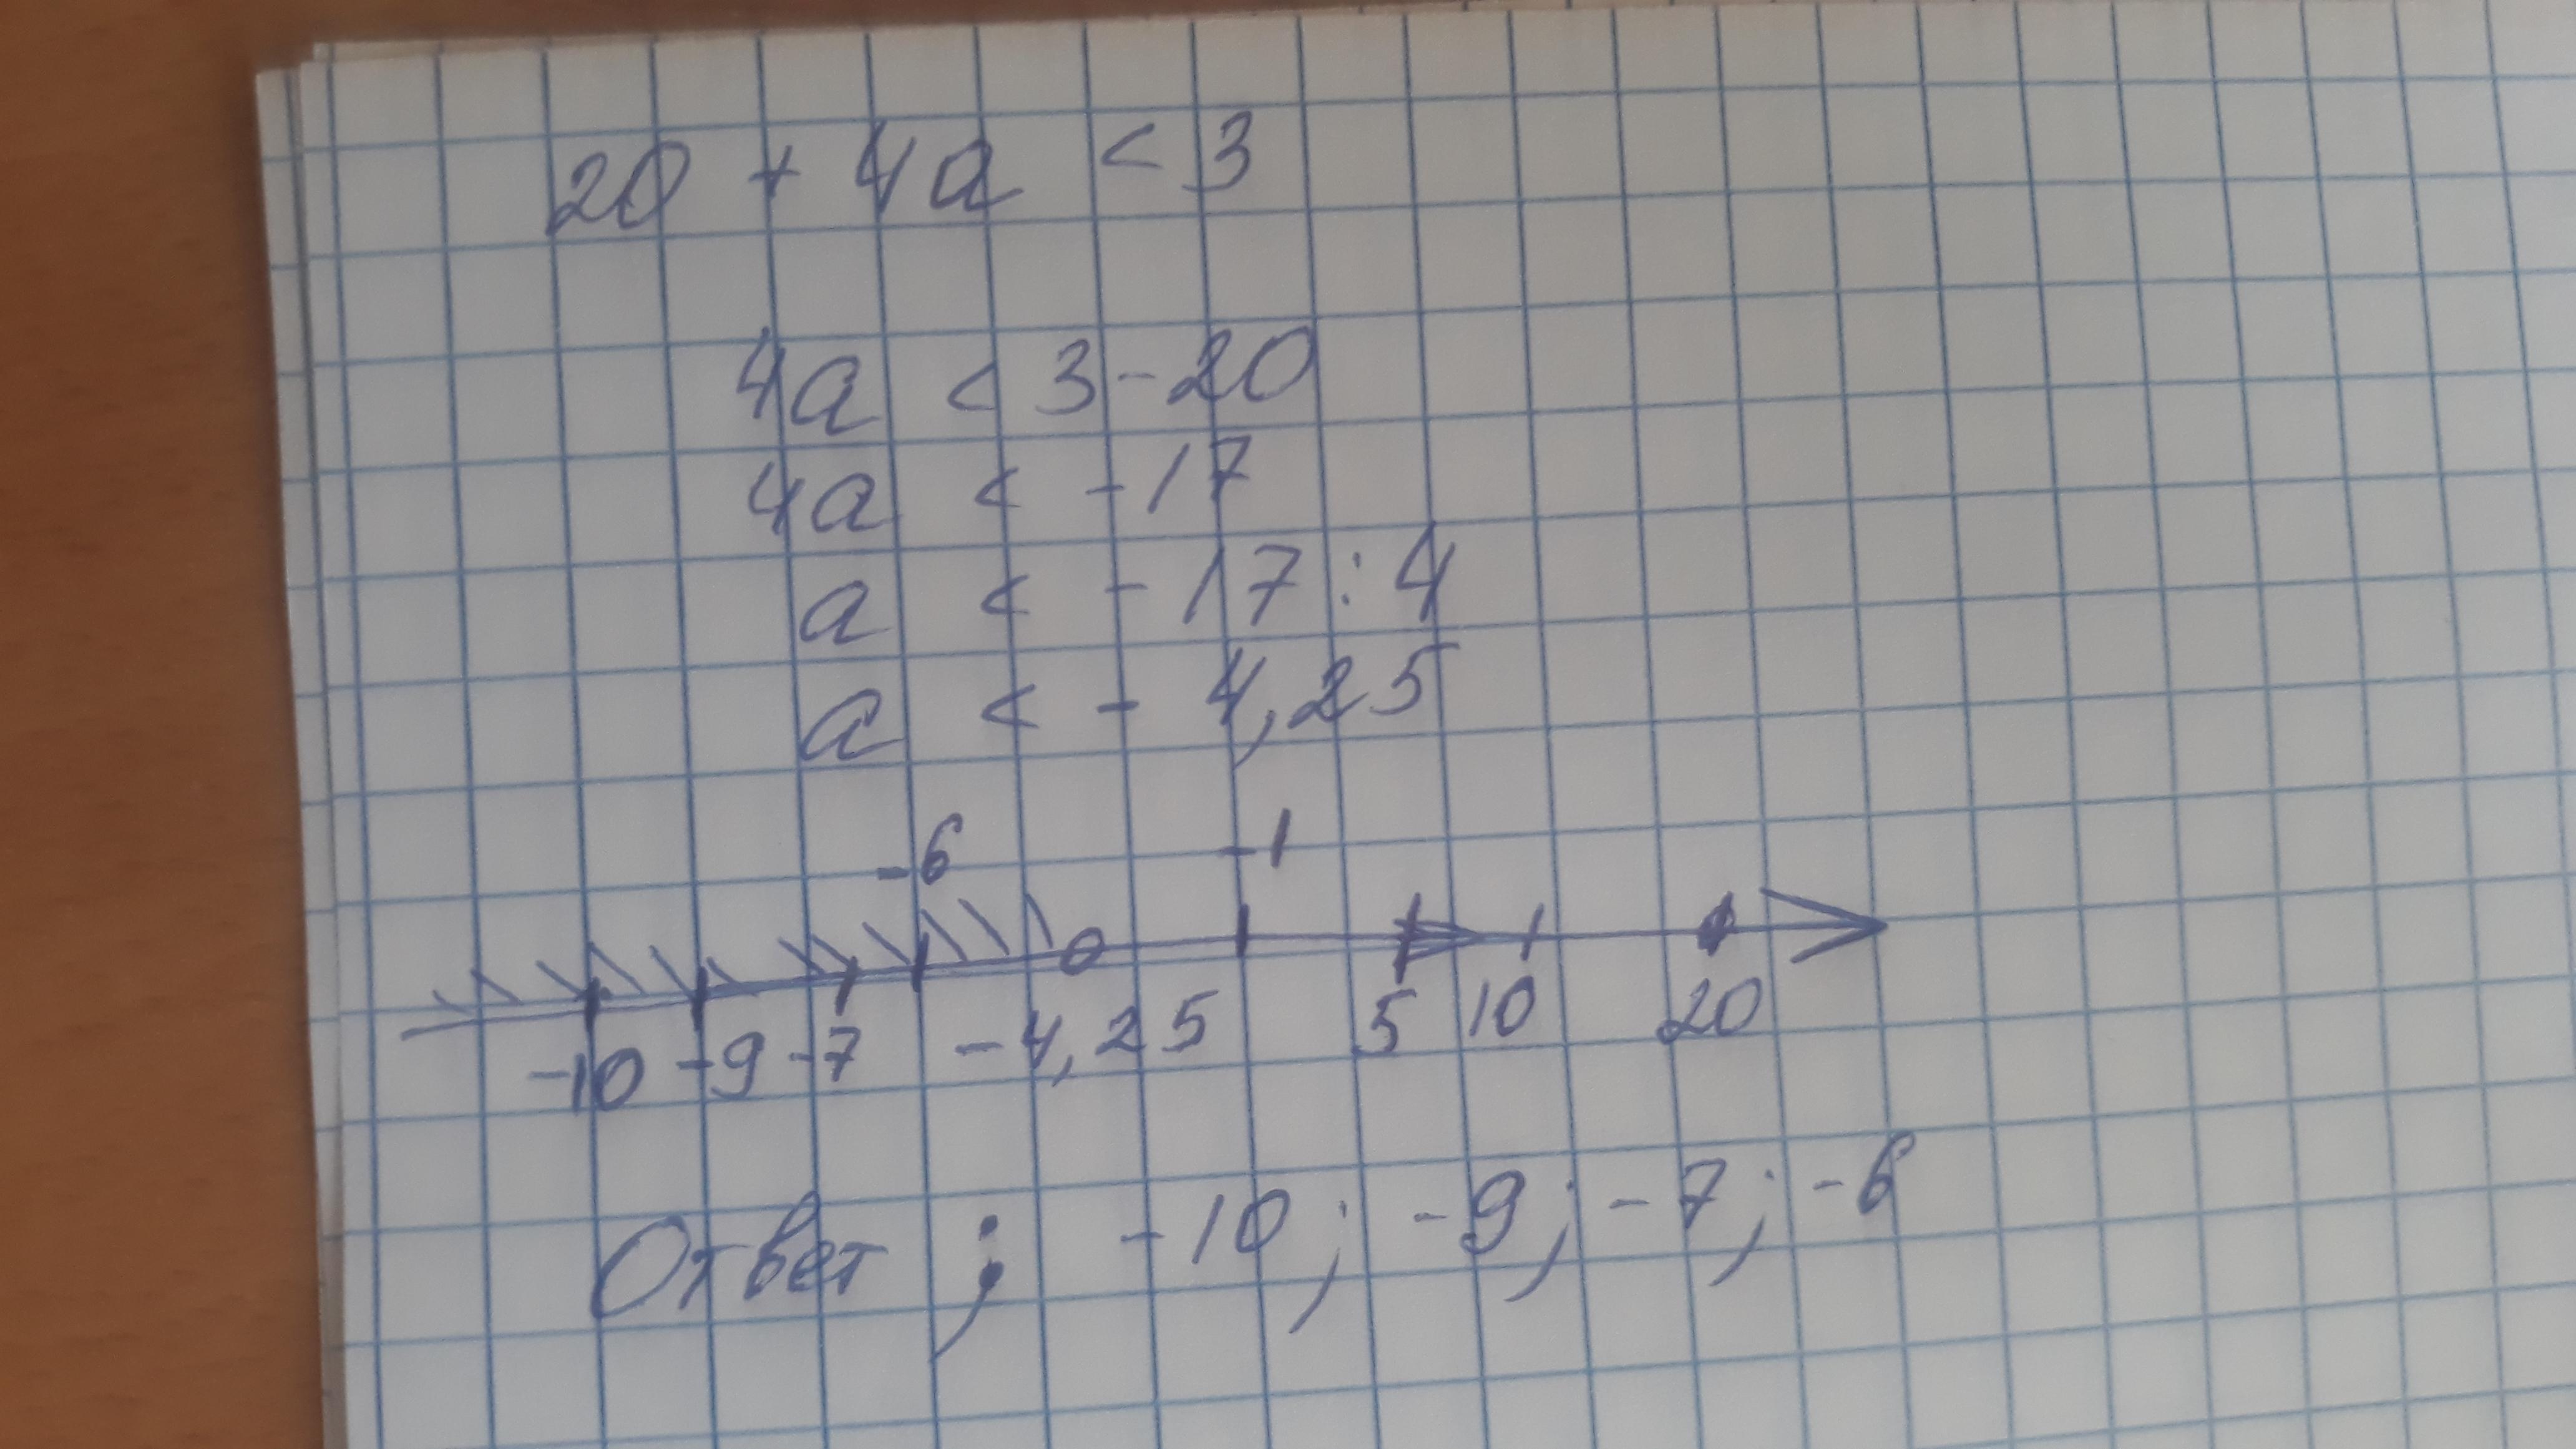 20 + 4a < 3
4a < 3 - 20
4a < - 17
a < - 17 : 4
a < - 4,25
-6 -1
-10 -9 -7 -4,25 5 10 20
Ответ ; -10; -9; -7; -6